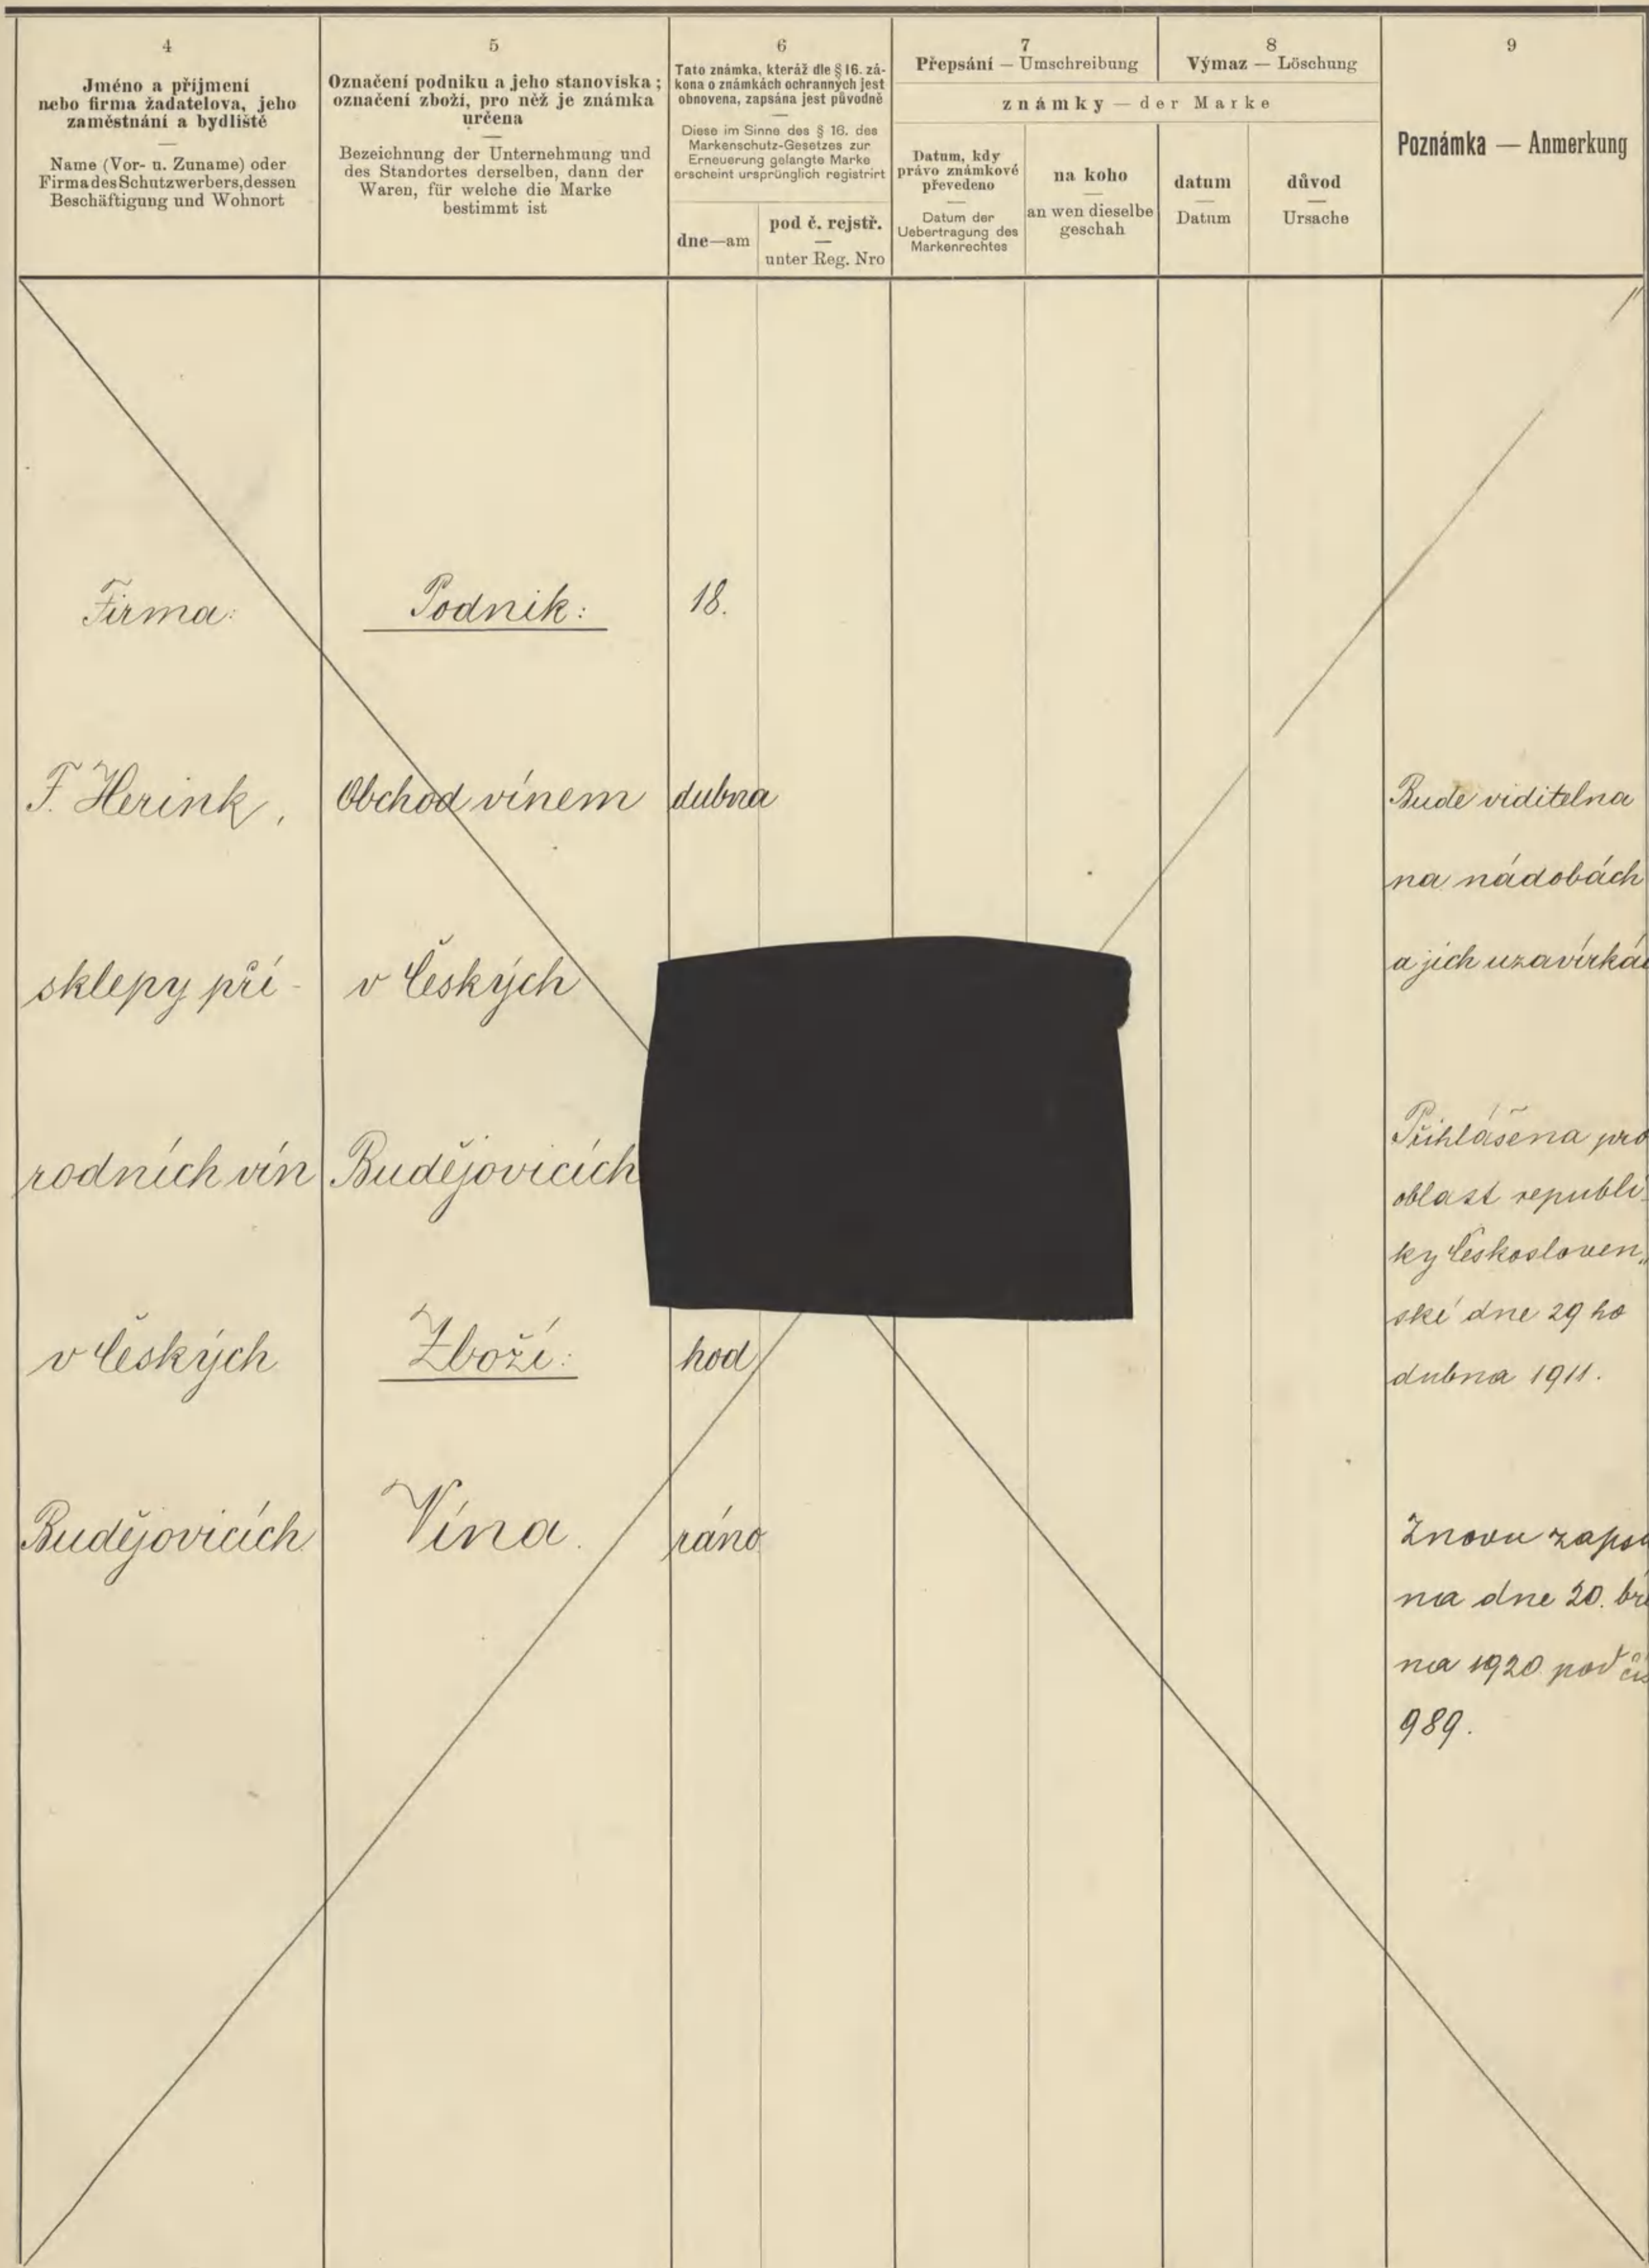 4
Jméno a příjmení
nebo firma žadatelova, jeho
zaměstnání a bydliště
Name (Vor- u. Zuname) oder
Firma des Schutzwerbers, dessen
Beschäftigung und Wohnort
5
Označení podniku a jeho stanoviska;
označení zboží, pro něž je známka
určena
Bezeichnung der Unternehmung und
des Standortes derselben, dann der
Waren, für welche die Marke
bestimmt ist
6
Tato známka, kteráž dle § 16. zá-
kona o známkách ochranných jest
obnovena, zapsána jest původně
Diese im Sinne des § 16. des
Markenschutz-Gesetzes zur
Erneuerung gelangte Marke
erscheint ursprünglich registrirt
dne—am
pod č. rejstř.
unter Reg. Nro
7
Přepsání — Umschreibung
8
Výmaz — Löschung
známky — der Marke
Datum, kdy
právo známkové
převedeno
Datum der
Uebertragung des
Markenrechtes
na koho
an wen dieselbe
geschah
datum
Datum
důvod
Ursache
9
Poznámka — Anmerkung
Firma:
F. Herink,
sklepy pří-
rodních vín
v Českých
Budějovicích
Podnik:
Obchod vínem
v Českých
Budějovicích
Zboží:
Vína.
18.
dubna
hod
ráno
Bude viditelna
na nádobách
a jich
Přihlášena pro
oblast republi-
ky Českosloven„
ské dne 29 ho
dubna 1911.
Znovu
na dne 20.
na 1920 pod
989.